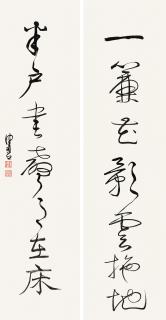 一簾花影雲拖地
半户書聲月在床